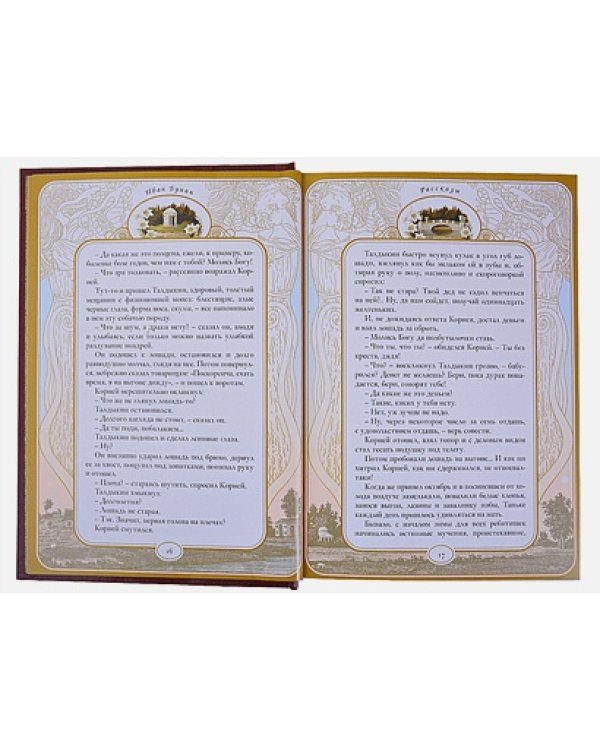 Иван Бунин
– Да какая же это полцена, ежели, к примеру, ко-
быленке боле годов, чем нам с тобой? Молись Богу!
– Что зря толковать, – рассеянно возражал Кор-
ней.
Тут-то и пришел Талдыкин, здоровый, толстый
мещанин с физиономией мопса: блестящие, злые
черные глаза, форма носа, скулы, – все напоминало
в нем эту собачью породу.
– Что за шум, а драки нету? – сказал он, входя
и улыбаясь, если только можно назвать улыбкой
раздувание ноздрей.
Он подошел к лошади, остановился и долго
равнодушно молчал, глядя на нее. Потом повернул-
ся, небрежно сказал товарищам: «Поскореича, ехать
время, я на выгоне дожду», – и пошел к воротам.
Корней нерешительно окликнул:
– Что же не глянул лошадь-то!
Талдыкин остановился.
– Долгого взгляда не стоит, – сказал он.
– Да ты поди, побалакаем...
Талдыкин подошел и сделал ленивые глаза.
– Ну?
Он внезапно ударил лошадь под брюхо, дернул
ее за хвост, пощупал под лопатками, понюхал руку
и отошел.
– Плоха? – стараясь шутить, спросил Корней.
Талдыкин хмыкнул:
– Долголетня?
– Лошадь не старая.
– Тэк. Значит, первая голова на плечах?
Корней смутился.
16
Рассказы
Талдыкин быстро всунул кулак в угол губ ло-
шади, взглянул как бы мельком ей в зубы и, об-
тирая руку о полу, насмешливо и скороговоркой
спросил:
– Так не стара? Твой дед не ездил венчаться
на ней?.. Ну, да нам сойдет, получай одиннадцать
желтеньких.
И, не дожидаясь ответа Корнея, достал деньги
и взял лошадь за оброть.
– Молись Богу да полбутылочки ставь.
– Что ты, что ты? – обиделся Корней. – Ты без
креста, дядя!
– Что? – воскликнул Талдыкин грозно, – обабу-
рился? Денег не желаешь? Бери, пока дурак попа-
дается, бери, говорят тебе!
– Да какие же это деньги?
– Такие, каких у тебя нету.
– Нет, уж лучше не надо.
– Ну, через некоторое число за семь отдашь,
с удовольствием отдашь, – верь совести.
Корней отошел, взял топор и с деловым видом
стал тесать подушку под телегу.
Потом пробовали лошадь на выгоне... И как ни
хитрил Корней, как ни сдерживался, не отвоевал-
таки!
Когда же пришел октябрь и в посиневшем от хо-
лода воздухе замелькали, повалили белые хлопья,
занося выгон, лазины и завалинку избы, Таньке
каждый день пришлось удивляться на мать.
Бывало, с началом зимы для всех ребятишек
начинались истинные мучения, проистекавшие,
17